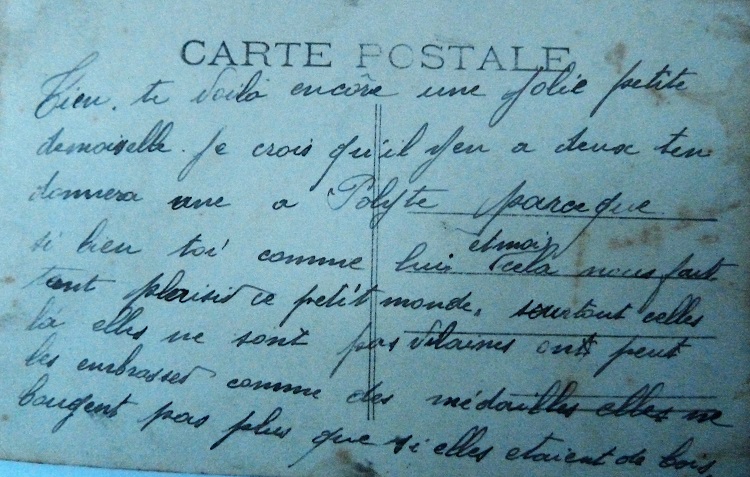 CARTE POSTALE
Tien, te voilà encore une jolie petite
demoiselle. Je crois qu'il yen a deux ten
donnera une a Polyte parceque
si bien toi comme lui et moi cela nous fait
tant plaisir ce petit monde, surtout celles
là elles ne sont pas vilaines ont peut
les embrasser comme des médailles elles ne
bougent pas plus que si elles etaient de bois,